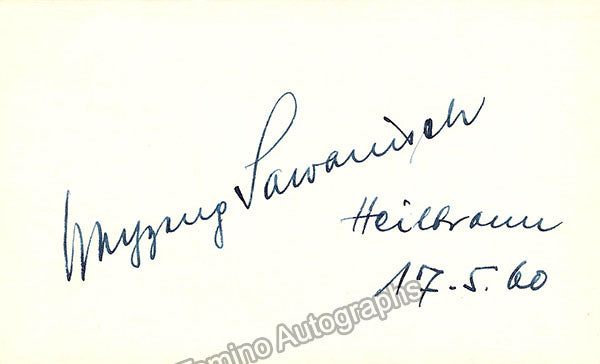 Wolfgang Sawallisch
Heilbronn
17.5.60
Tamino Autographs